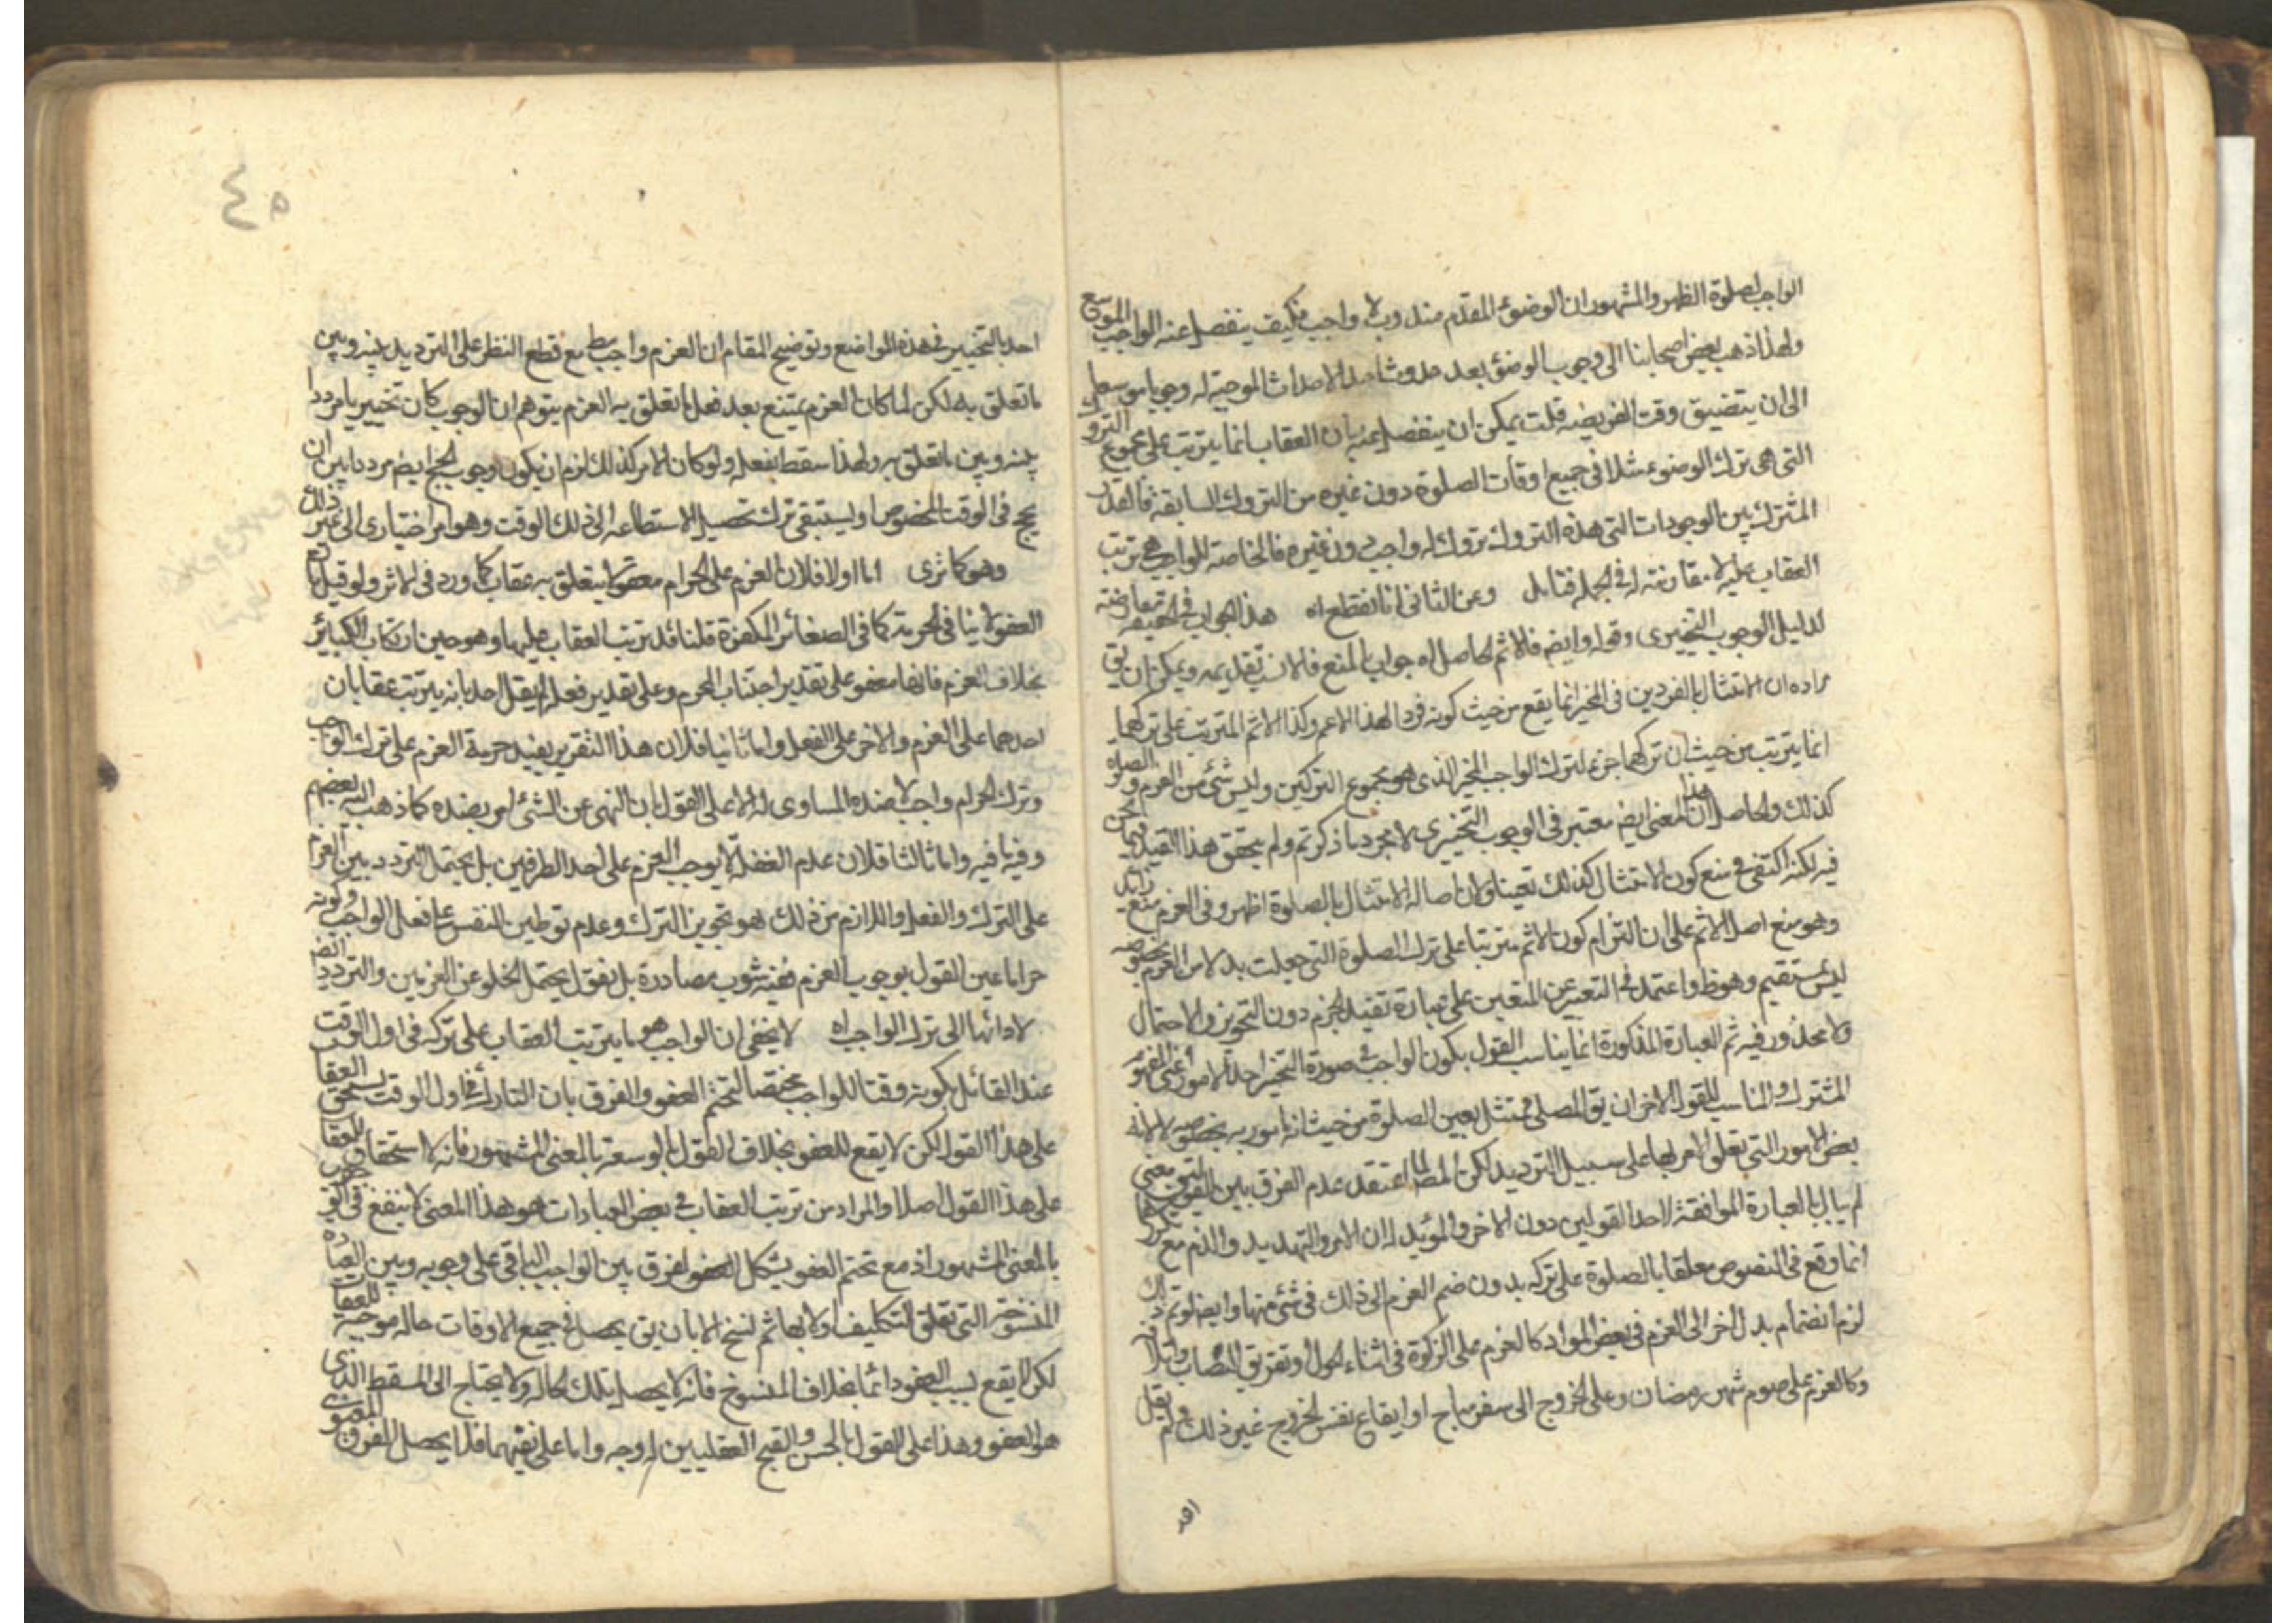 الواجب لصلوة الظهر والمشهور ان الوضوء المقدم مندوب لا واجب فكيف ينفصل عنه الواجب الموسع
ولهذا ذهب بعض اصحابنا الى وجوب الوضوء بعد حدوث احد الاحداث الموجبة له وجوبا موسعا
الى ان يتضيق وقت الفريضه قلت يمكن ان ينفصل عنه بان العقاب انما يترتب على مجموع التروك
التى هى ترك الوضوء مثلا فى جميع اوقات الصلوة دون غيره من التروك السابقة فالقدر
المشترك بين الوجودات التى هذه التروك تروك له واجب دون غيره فالخاصة للواجب هى ترتب
العقاب عليه لا مقارنته له فى الجملة فتامل وعن الثانى انا نقطع اه هذا الجواب فى الحقيقة معارضة
لدليل الوجوب التخييرى وقوله وايضا فالاثم الحاصل اه جواب بالمنع فالانسب تقديمه ويمكن ان يق
مراده ان الامتثال بالفردين فى المخير انما يقع من حيث كونه فردا لهذا الاعم وكذا الاثم المترتب على تركهما
انما يترتب من حيث ان تركهما جزء لترك الواجب المخير الذى هو مجموع التركين وليس شئ من العزم والصلوة
كذلك والحاصل ان هذا المعنى ايضا معتبر فى الوجوب التخييرى لا مجرد ما ذكرتم ولم يتحقق هذا القيد فيما نحن
فيه لكنه اكتفى فى منع كون الامتثال كذلك تعيينا ولان اصالة الامتثال بالصلوة اظهر وفى العزم منع زايد
وهو منع اصل الاثم على ان التزام كون الاثم مترتبا على ترك الصلوة التى جعلت بدلا من العزم بخصوصه
ليس بمستقيم وهو ظ واعتمد فى التعبير عن المتعين على عبارة تفيد الجزم دون التجويز والاحتمال
ولا محذور فيه ثم العبارة المذكورة انما يناسب القول بكون الواجب فى صورة التخيير احد الامور اعنى المفهوم
المشترك والمناسب للقول الاخر ان يق المصلى ممتثل بعين الصلوة من حيث انه مامور به بخصوصه لا لانه
بعض الامور التى تعلق الامر بها على سبيل الترديد لكن المص لما اعتقد عدم الفرق بين القولين معنى
لم يبال بالعبارة الموافقة لاحد القولين دون الاخر والمؤيد له ان الامر والتهديد والذم مع تكررها
انما وقع فى النصوص معلقا بالصلوة على تركه بدون ضم العزم الى ذلك فى شئ منها وايضا لو تم ذلك
لزم انضمام بدل اخر الى العزم فى بعض المواد كالعزم على الزكوة فى اثناء الحول وتفريق النصاب واتلافه
وكالعزم على صوم شهر رمضان وعلى الخروج الى سفر مباح او ايقاع نفس الخروج غير ذلك ولم يقل
احد
٤٥
احد بالتخيير فى هذه المواضع وتوضيح المقام ان العزم واجب مع قطع النظر على الترديد بينه وبين
ما تعلق به لكن لما كان العزم يمتنع بعد فعل ما تعلق به العزم يتوهم ان الوجوب كان تخييريا مرددا
بينه وبين ما تعلق به ولهذا سقط بفعله ولو كان الامر كذلك لزم ان يكون وجوب الحج ايضا مرددا بين ان
يحج فى الوقت المخصوص او يستبقى ترك تحصيل الاستطاعه الى ذلك الوقت وهو امر اختيارى الى غير ذلك
وهو كما ترى اما اولا فلان العزم على الحرام معفو لا يتعلق به عقاب كما ورد فى الاثر ولو قيل بان
العفو لا ينافى الحرمة كما فى الصغائر المكفرة قلنا قد يترتب العقاب عليها وهو حين ارتكاب الكبائر
بخلاف العزم فانها معفو على تقدير اجتناب المحرم وعلى تقدير فعله لم يقل احد بانه يترتب عقابان
احدهما على العزم والاخر على الفعل واما ثانيا فلان هذا التقرير يفيد حرمة العزم على ترك الواجب
وترك الحرام واجب لا ضده المساوى له الا على القول بان النهى عن الشئ امر بضده كما ذهب اليه بعضهم
وفيه ما فيه واما ثالثا فلان عدم الغفلة لا يوجب العزم على احد الطرفين بل يحتمل التردد بين العزم
على الترك والفعل واللازم من ذلك هو تجويز الترك وعدم توطين النفس على فعل الواجب وكونه
حراما عين القول بوجوب العزم ففيه شوب مصادرة بل نقول يحتمل الخلو عن العزمين والتردد ايضا
لادائها الى ترك الواجب اه لا يخفى ان الواجب هو ما يترتب العقاب على تركه فى اول الوقت
عند القائل بكونه وقتا للواجب مختصا لتحتم العفو والفرق بان التارك فى اول الوقت يستحق العقاب
على هذا القول لكن لا يقع للعفو بخلاف القول بالوسعة بالمعنى المشهور فانه لا استحقاق للعقاب
على هذا القول اصلا والمراد من ترتب العقاب فى بعض العبارات هو هذا المعنى لا ينفع فى
بالمعنى المشهور اذ مع تحتم العفو يشكل الفرق بين الواجب الباقى على وجوبه وبين العبادة
المنسوخة التى تعلق التكليف اولا بها ثم نسخ الا بان يق يحصل فى جميع الاوقات حالة موجبة للعقاب
لكن لا يقع لسبب العفو دائما بخلاف المنسوخ فانه لا يحصل تلك الحالة ولا يحتاج الى المسقط الذى
هو العفو وهذا على القول بالحسن والقبح العقليين له وجه واما على نفيهما فلا يحصل الفرق